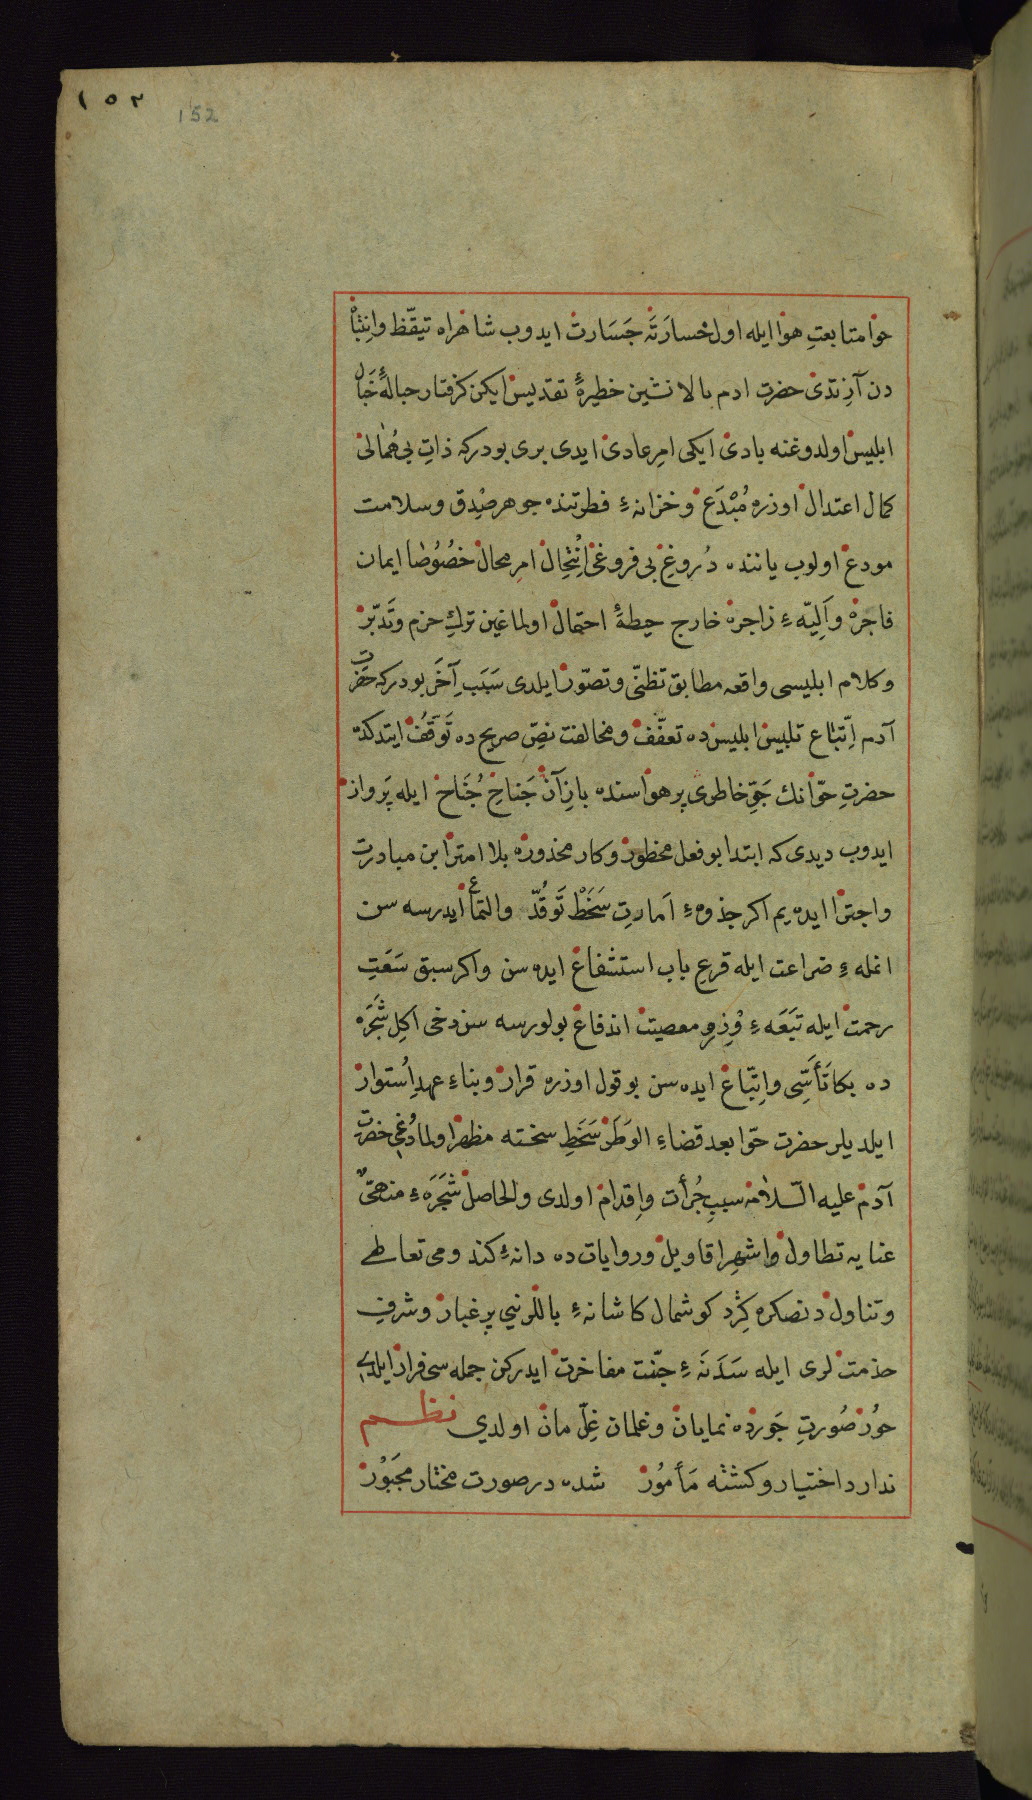 ١٥٢
152
حوا متابعتِ هوا ایله اول خسارَتَه جَسَارت ایدوب شاهراه تیقّظ وانتباْ
دن آزِتدی حضرت ادم بالا نشین خطیرهٔ تقدیس ایکن کرفتار حبالهٔ خَبال
ابلیس اولدوغنه بادی ایکی امرِ عادی ایدی بری بودرکه ذاتِ بی هُمالی
کمال اعتدال اوزره مُبْدَع وخزانهٔ فطرتنده جوهر صِدق وسلامت
مودع اولوب یاننده دُروغِ بی فروغ اِنْتِحال امرِ محال خصُوصًا ایمان
فاجره واَلِیّهٔ زاجره خارج حیطهٔ احتمال اولماغین ترکِ حزم وتَدبّر
وکلام ابلیسی واقعه مطابق تظنّی وتصوّر ایلدی سَبَبِ آخَر بودرکه حضرت
آدم اِتّباع تلبیس ابلیس ده تعفّف ومخالفت نصِّ صریح ده تَوقّف ایتدکده
حضرتِ حوّانك جَوِّ خاطری پر هواسنده بازِ آن جَناحِ جُنَاح ایله پَرواز
ایدوب دیدی که ابتدا بو فعل محظور وکار محذوره بلا امترا بن مبادرت
واجترا ایده یم اکر جذوهٔ اَمارتِ سَخَطْ تَوقُدّ والتماع ایدرسه سن
انمله ٔ ضراعت ایله قرعِ باب استشفاع ایده سن واکر سبق سَعَتِ
رحمت ایله تبَعَهٔ وِزرِ معصیت اندفاع بولورسه سن دخی اکلِ شَجَرَه
ده بکا تَأَسِّی واِتّباع ایده سن بو قول اوزره قرار وبناءِ عهدِ اُستوار
ایلدیلر حضرت حوّا بعد قضاءِ الوَطَر سَخَطِ سخته مظهر اولمادُغی حضرت
آدم علیه السّلامه سببِ جُرأت واِقدام اولدی والحاصل شَجَرَهٔ منهیٌ
عنایه تطاول واشهرِ اقاویل وروایات ده دانهٔ کندومی تعاطی
وتناول دنصکره کِرد کوشمال کاشانهٔ باللرنیی پر غبار وشرفِ
خدمتلری ایله سَدَنَهٔ جنّت مفاخرت ایدرکن جمله سی فرار ایلدی
حُور صُورتِ جَورده نمایان وغلمان غِلّ مان اولدي نظم
ندارد اختیار وکشته مَأمُور شده در صورت مختار مجبَوُر